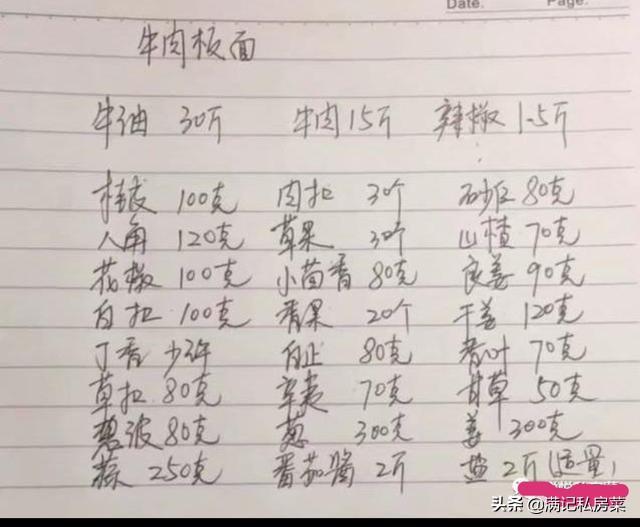 Date. Page.
牛肉板面
牛油 30斤 牛肉 15斤 辣椒 1-5斤
桂皮 100克 肉扣 3个 砂仁 80克
八角 120克 草果 3个 山楂 70克
花椒 100克 小茴香 80克 良姜 90克
白扣 100克 香果 20个 干姜 120克
丁香 少许 白止 80克 香叶 70克
草扣 80克 辛夷 70克 甘草 50克
80克 葱 300克 姜 300克
蒜 250克 番茄酱 2斤 盐 2斤(适量)
头条 @满记私房菜